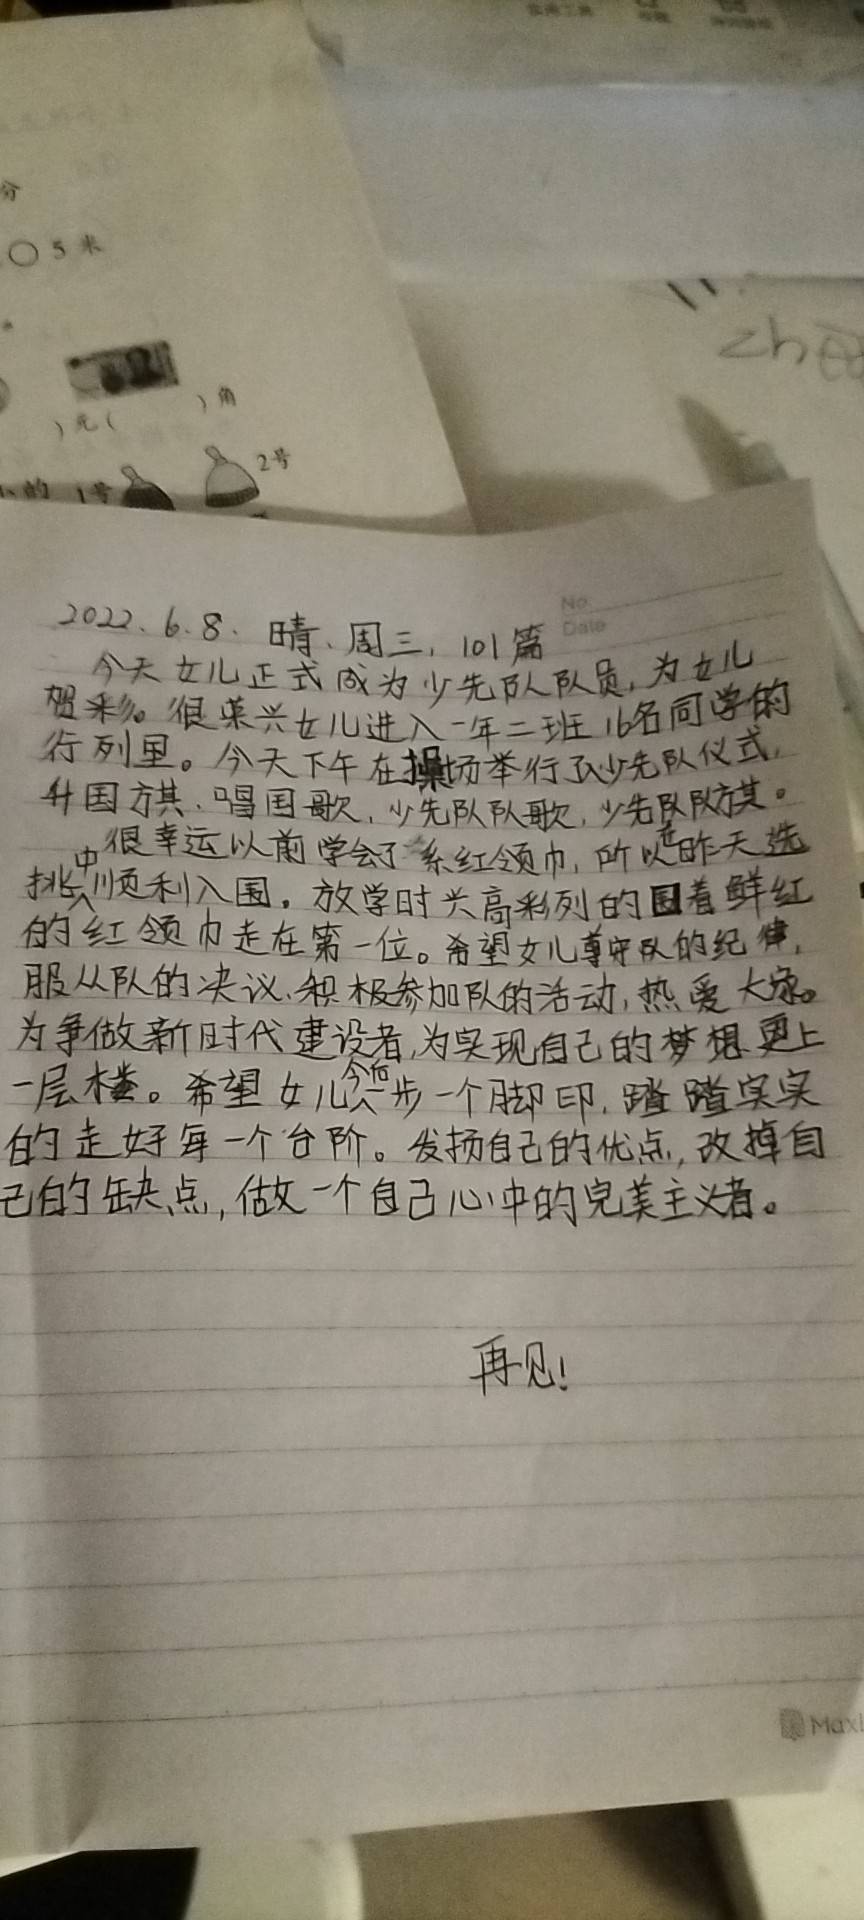 分
○5米
)元(  )角
2号
小的 1号
zh
No.
Date
2022.6.8. 晴、周三, 101篇
今天女儿正式成为少先队队员,为女儿
贺彩。很荣兴女儿进入一年二班16名同学的
行列里。今天下午在操场举行了少先队仪式,
升国旗、唱国歌,少先队队歌,少先队队旗。
很幸运以前学会了系红领巾,所以在昨天选
挑中顺利入围。放学时兴高彩列的围着鲜红
的红领巾走在第一位。希望女儿尊守队的纪律,
服从队的决议、积极参加队的活动,热爱大家。
为争做新时代建设者,为实现自己的梦想更上
一层楼。希望女儿今后一步一个脚印,踏踏实实
的走好每一个台阶。发扬自己的优点,改掉自
己的缺点,做一个自己心中的完美主义者。
再见!